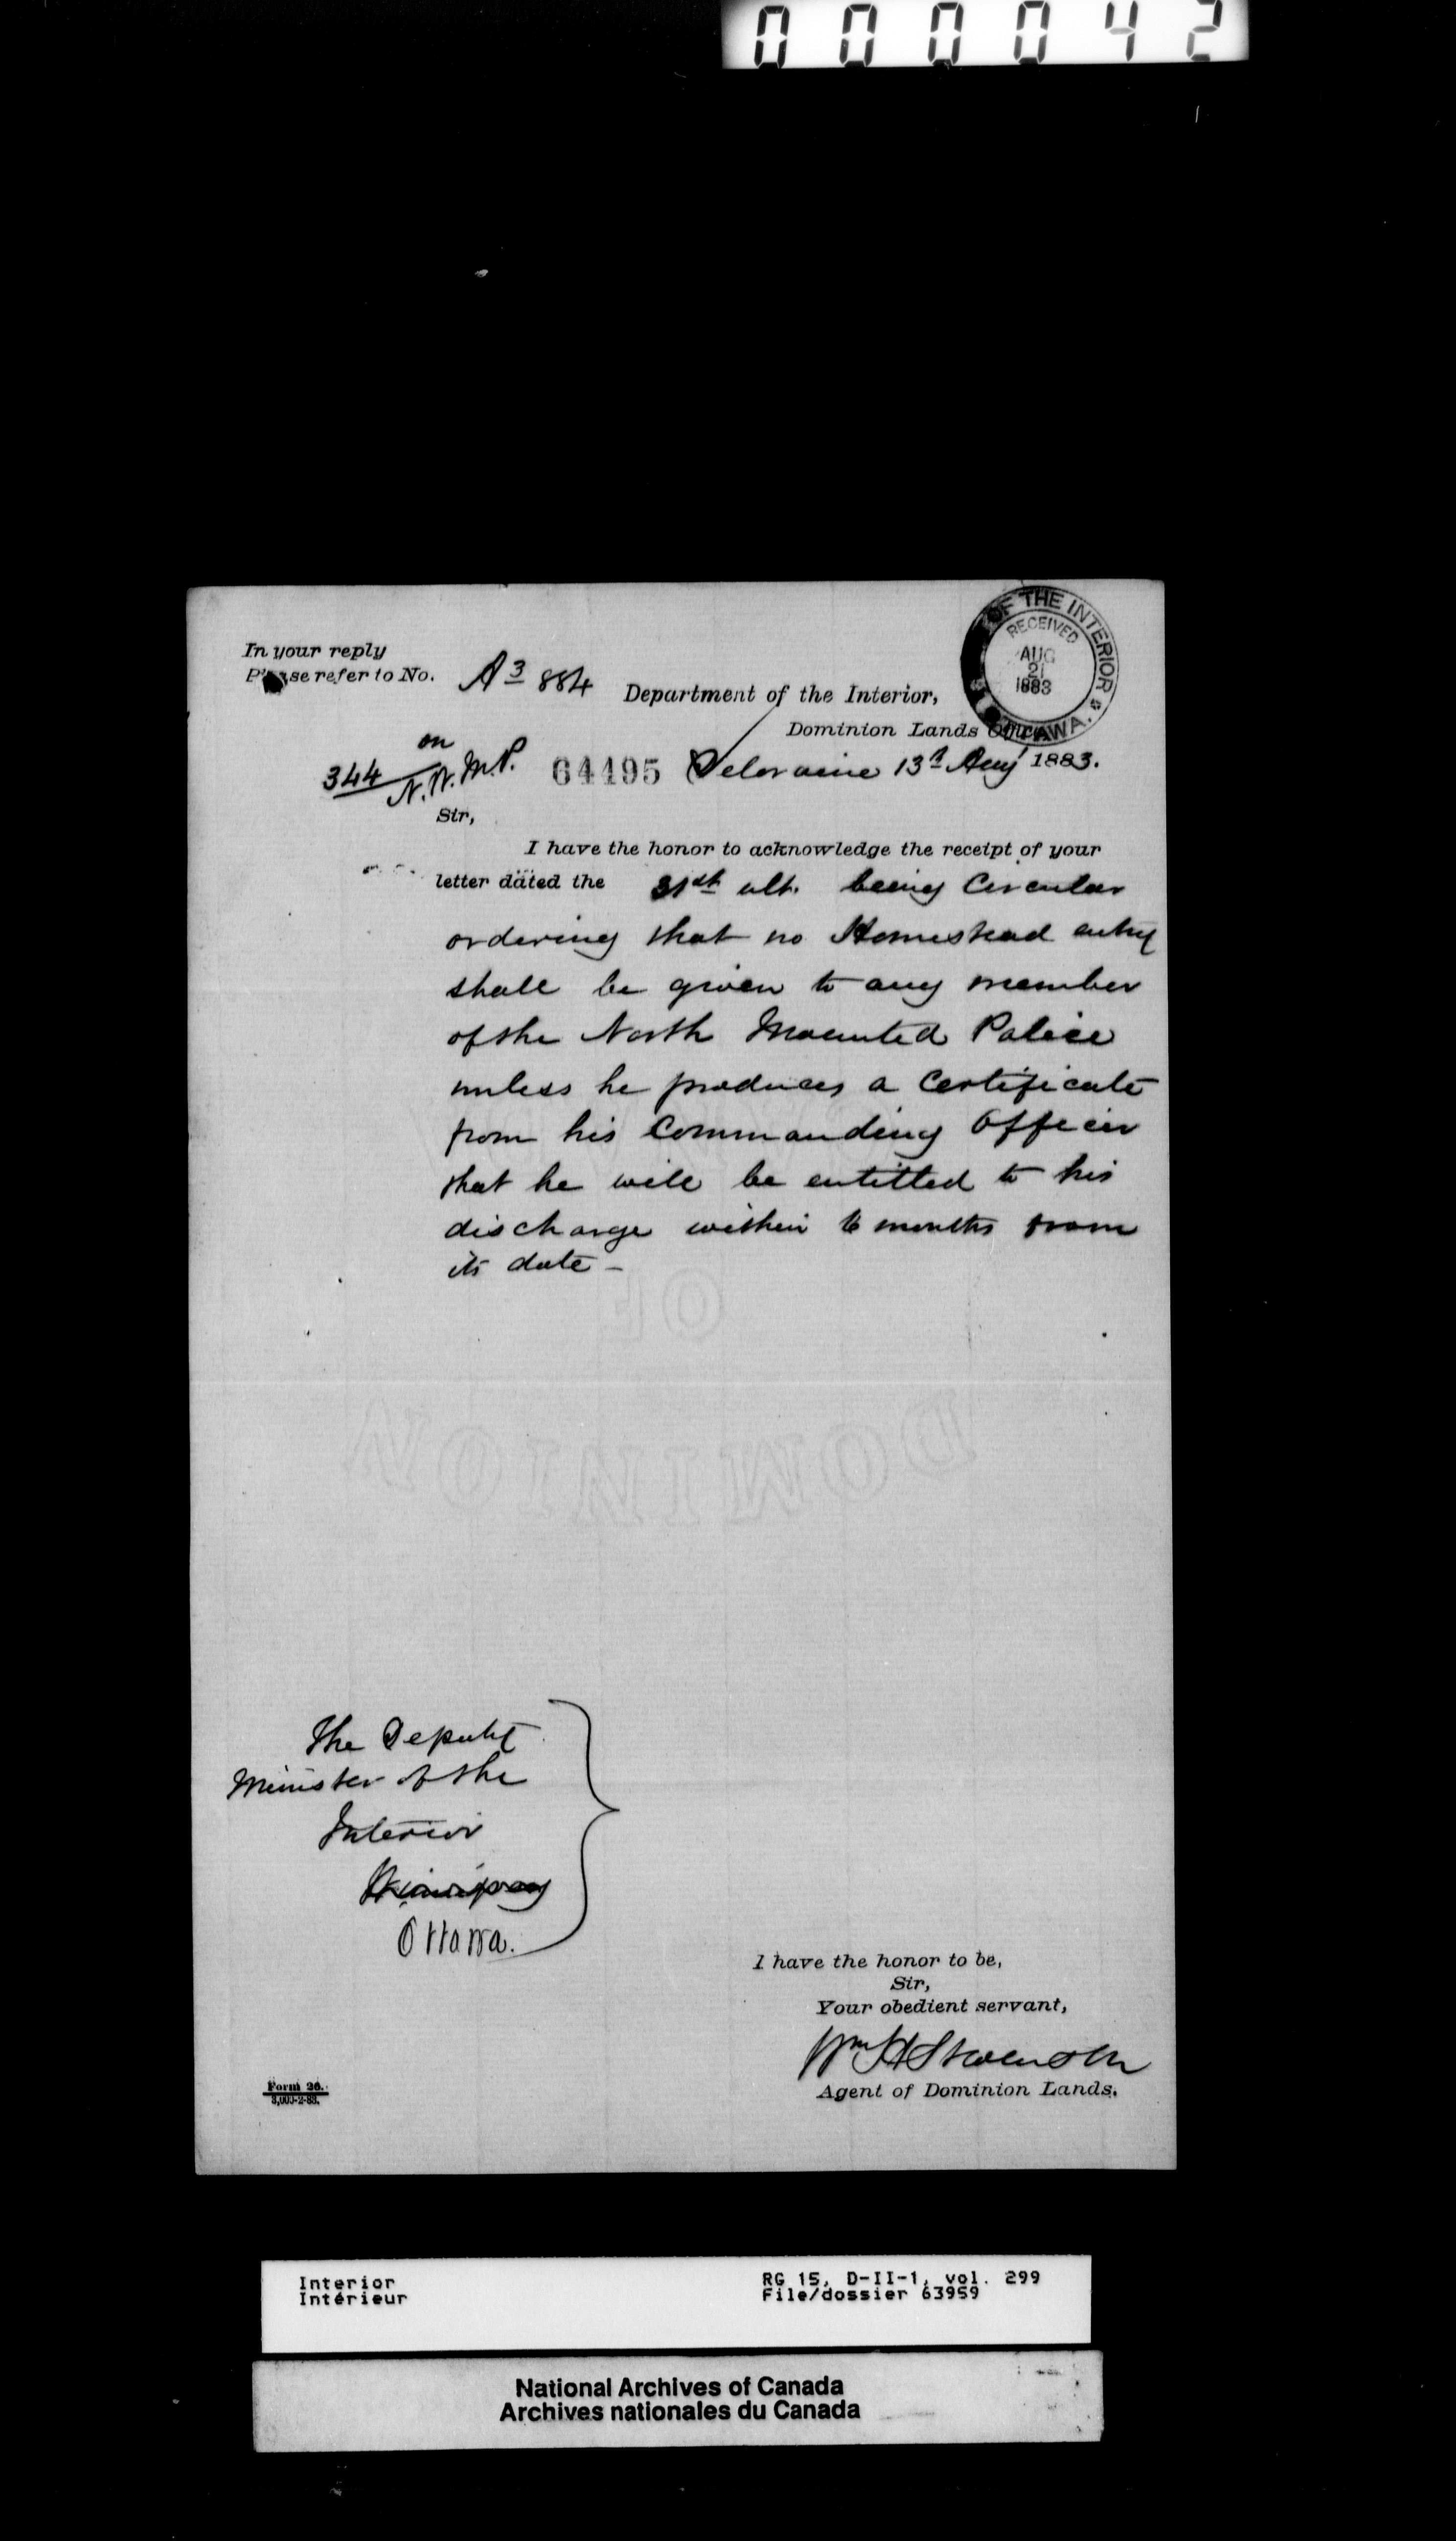 000042
In your reply
Please refer to No. A 3 884
OF THE INTERIOR
RECEIVED
AUG
21
1883
OTTAWA.
Department of the Interior,
Dominion Lands Office
on
344 N.W.M.P. 64495 Deloraine 13th Aug 1883.
Sir,
I have the honor to acknowledge the receipt of your
letter dated the 31st ult. being Circular
ordering that no Homestead entry
shall be given to any member
of the North Mounted Police
unless he produces a Certificate
from his Commanding Officer
that he will be entitled to his
discharge within 6 months from
its date –
OF
DOMINION
The Deputy
Minister of the
Interior
Winnipeg
Ottawa.
I have the honor to be,
Sir,
Your obedient servant,
Wm H Stevenson
Agent of Dominion Lands.
Form 26.
3,000-2-83.
Interior
Intérieur
RG 15, D-II-1, vol. 299
File/dossier 63959
National Archives of Canada
Archives nationales du Canada